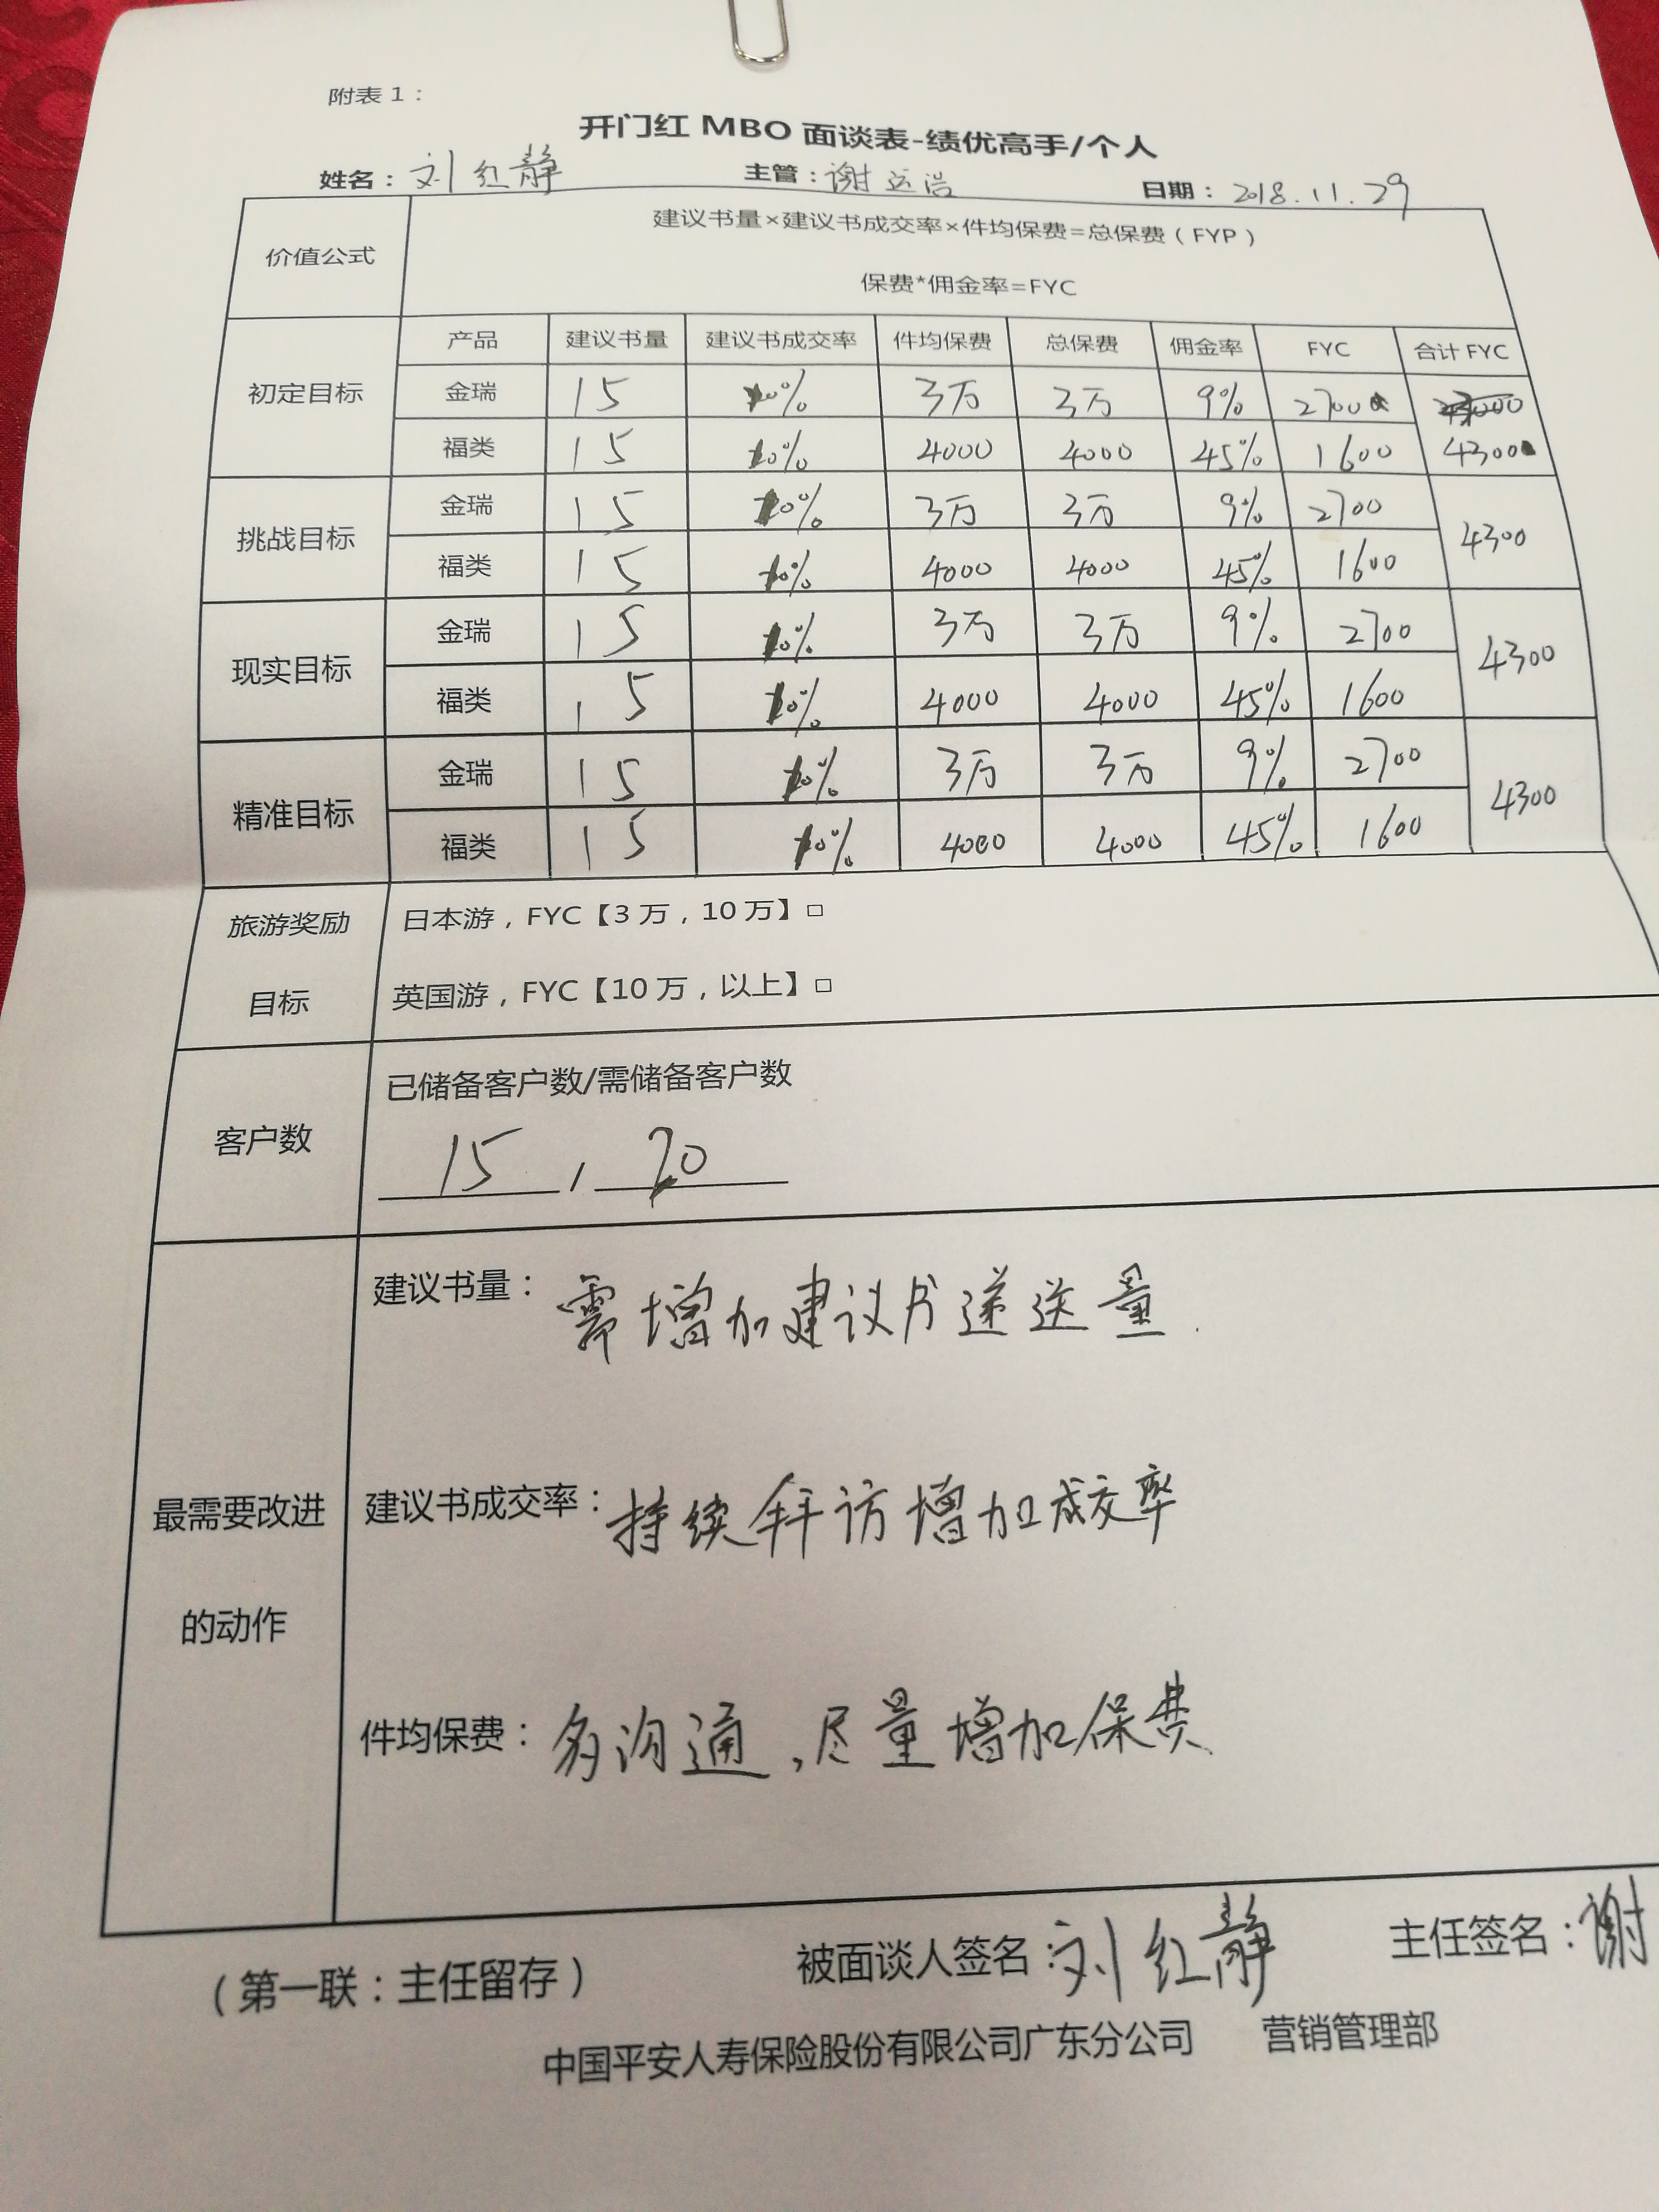 附表 1：
开门红 MBO 面谈表-绩优高手/个人
姓名：刘红静 主管：谢运浩 日期：2018.11.29
价值公式 建议书量×建议书成交率×件均保费=总保费（FYP）
保费*佣金率=FYC
初定目标 产品 建议书量 建议书成交率 件均保费 总保费 佣金率 FYC 合计 FYC
金瑞 15 10% 3万 3万 9% 2700
福类 15 10% 4000 4000 45% 1600 4300
挑战目标 金瑞 15 10% 3万 3万 9% 2700 4300
福类 15 10% 4000 4000 45% 1600
现实目标 金瑞 15 10% 3万 3万 9% 2700 4300
福类 15 10% 4000 4000 45% 1600
精准目标 金瑞 15 10% 3万 3万 9% 2700 4300
福类 15 10% 4000 4000 45% 1600
旅游奖励 日本游，FYC【3 万，10 万】□
目标 英国游，FYC【10 万，以上】□
客户数 已储备客户数/需储备客户数
15 / 20
建议书量：需增加建议书递送量.
最需要改进 建议书成交率：持续拜访增加成交率
的动作
件均保费：多沟通，尽量增加保费
（第一联：主任留存） 被面谈人签名：刘红静 主任签名：谢
中国平安人寿保险股份有限公司广东分公司 营销管理部